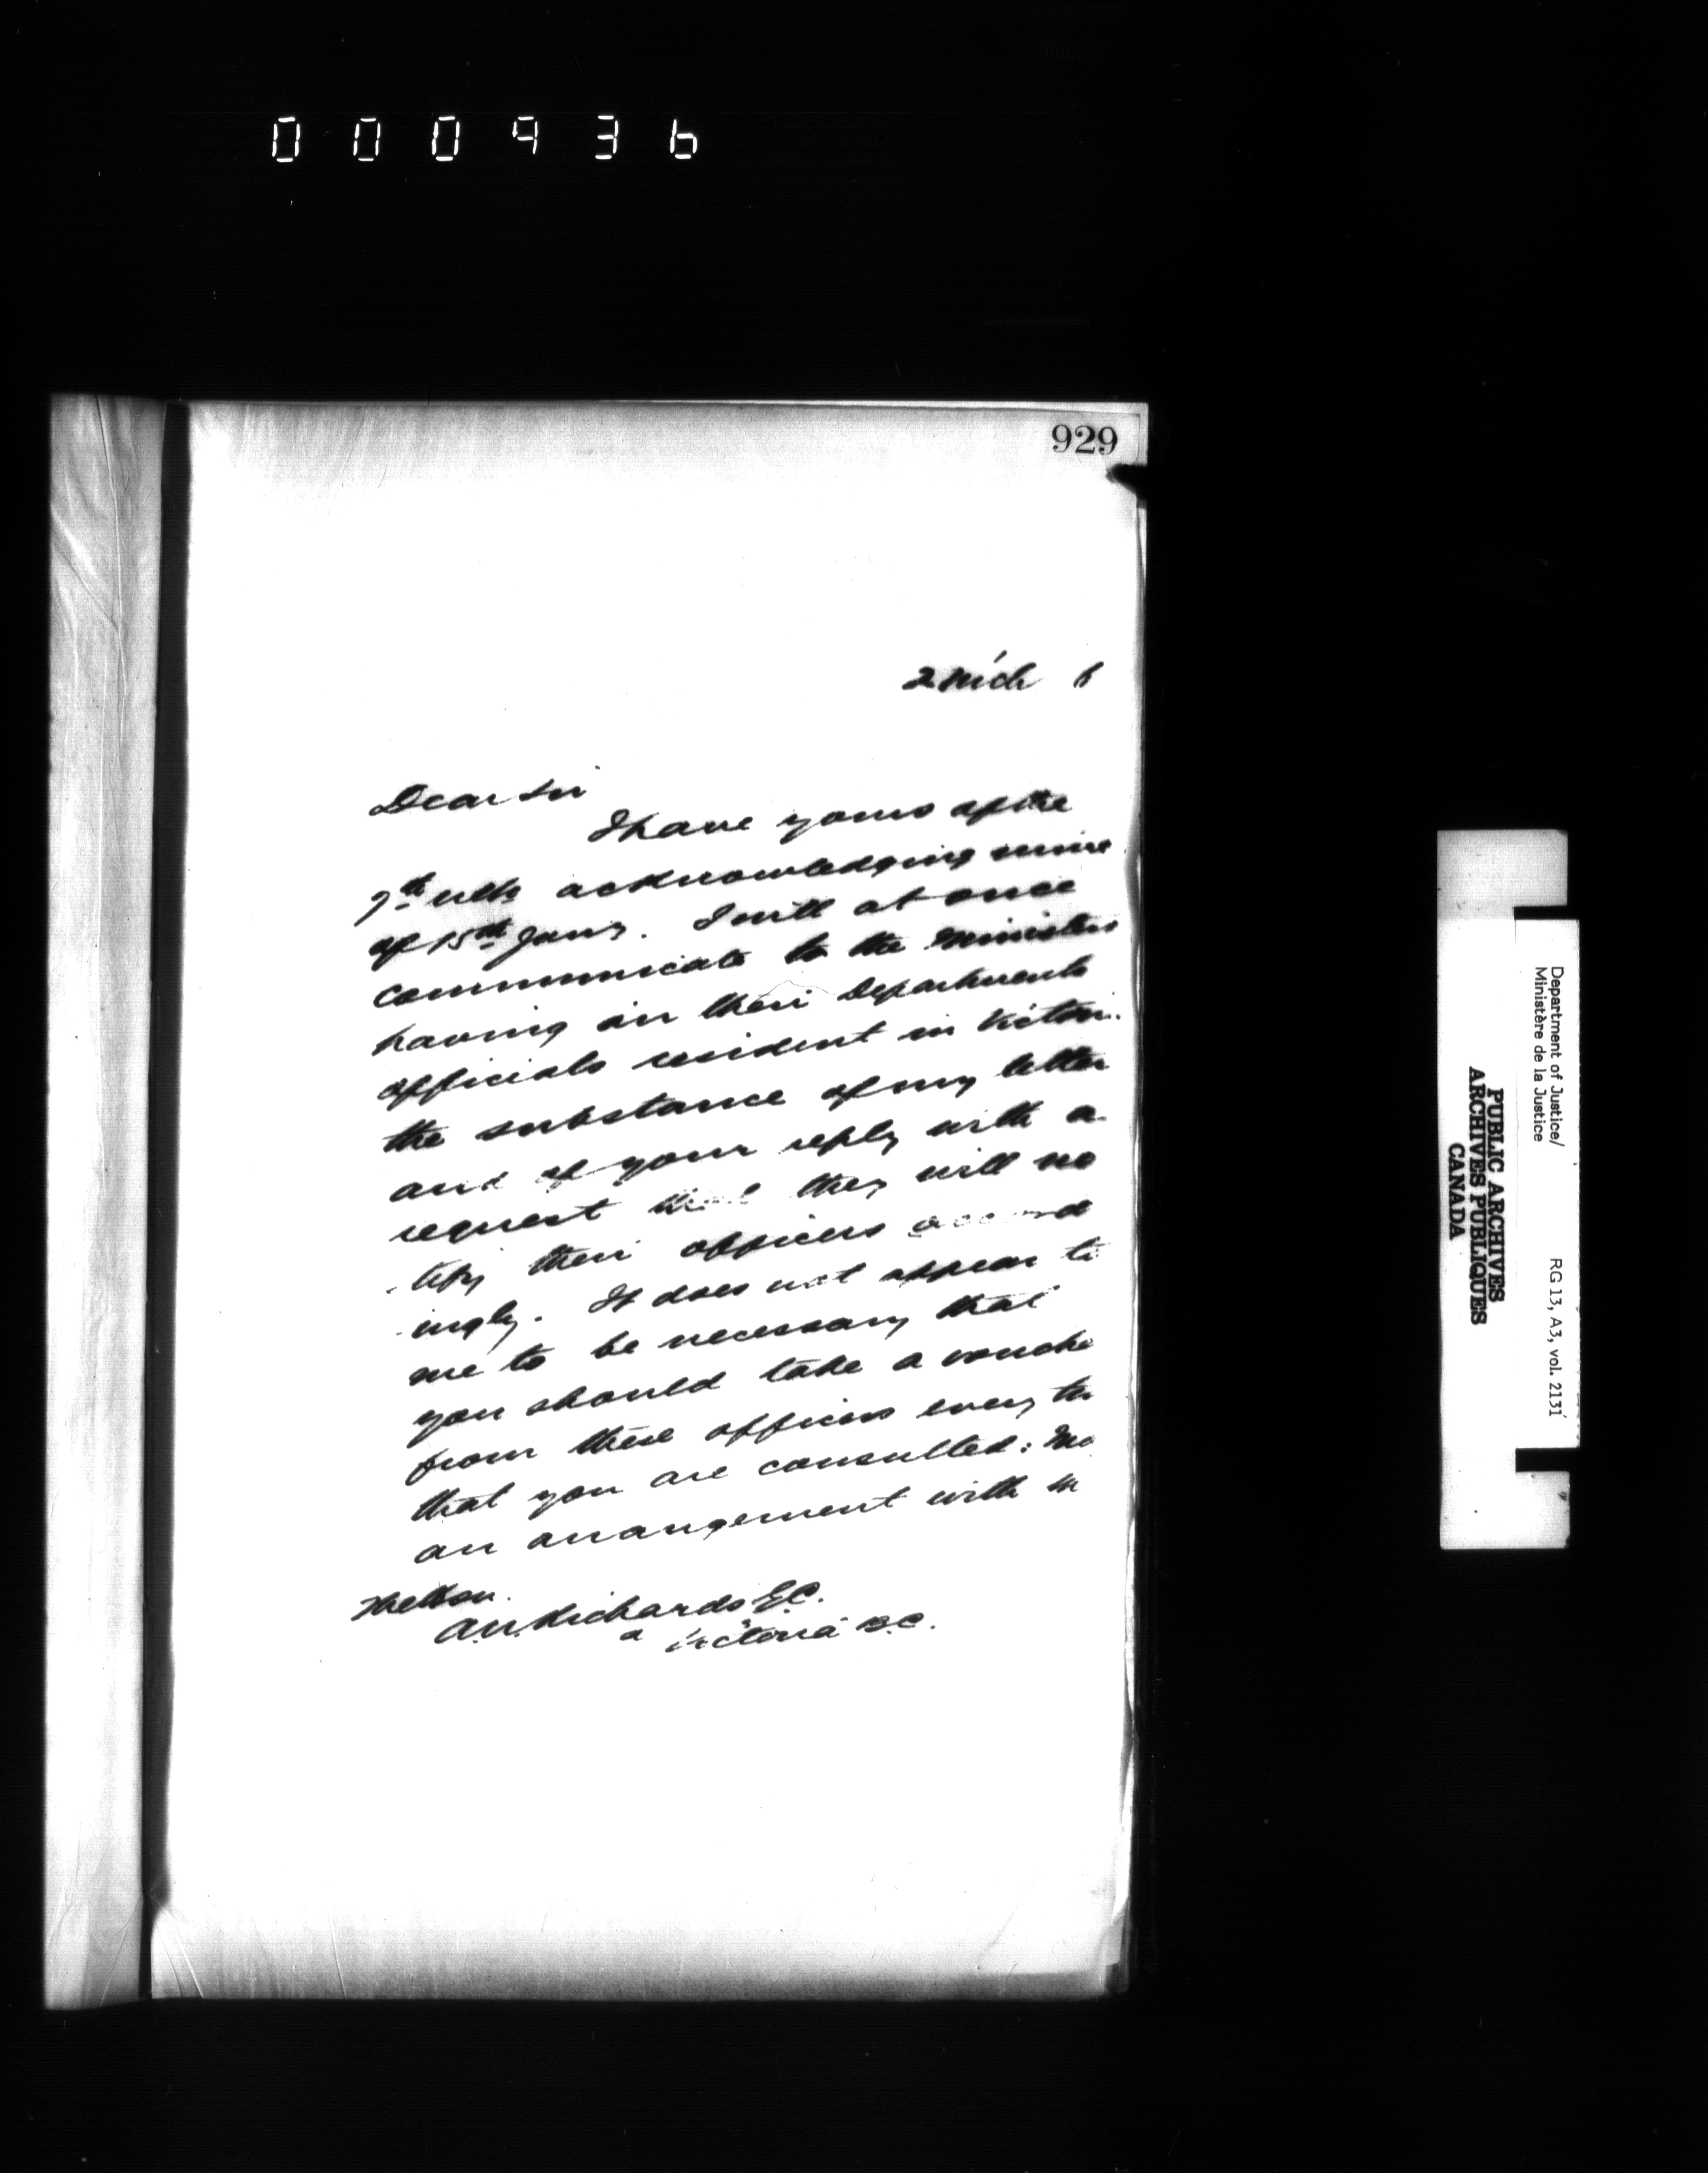 000936
929
2 Mch 6
Dear Sir
I have yours of the
7th ulto acknowledging mine
of 15th Jany. I will at once
communicate to the Ministers
having in their Departments
officials resident in Victori
the substance of my letter
and of your reply with a
request that they will no
-tify their officers accord
-ingly. It does not appear to
me to be necessary that
you should take a vouche
from these officers every
that you are consulted:
an arrangement with
The Hon.
A.N. Richards Q.C.
Victoria B.C.
Department of Justice/
Ministère de la Justice
RG 13, A3, vol. 2131
PUBLIC ARCHIVES
ARCHIVES PUBLIQUES
CANADA